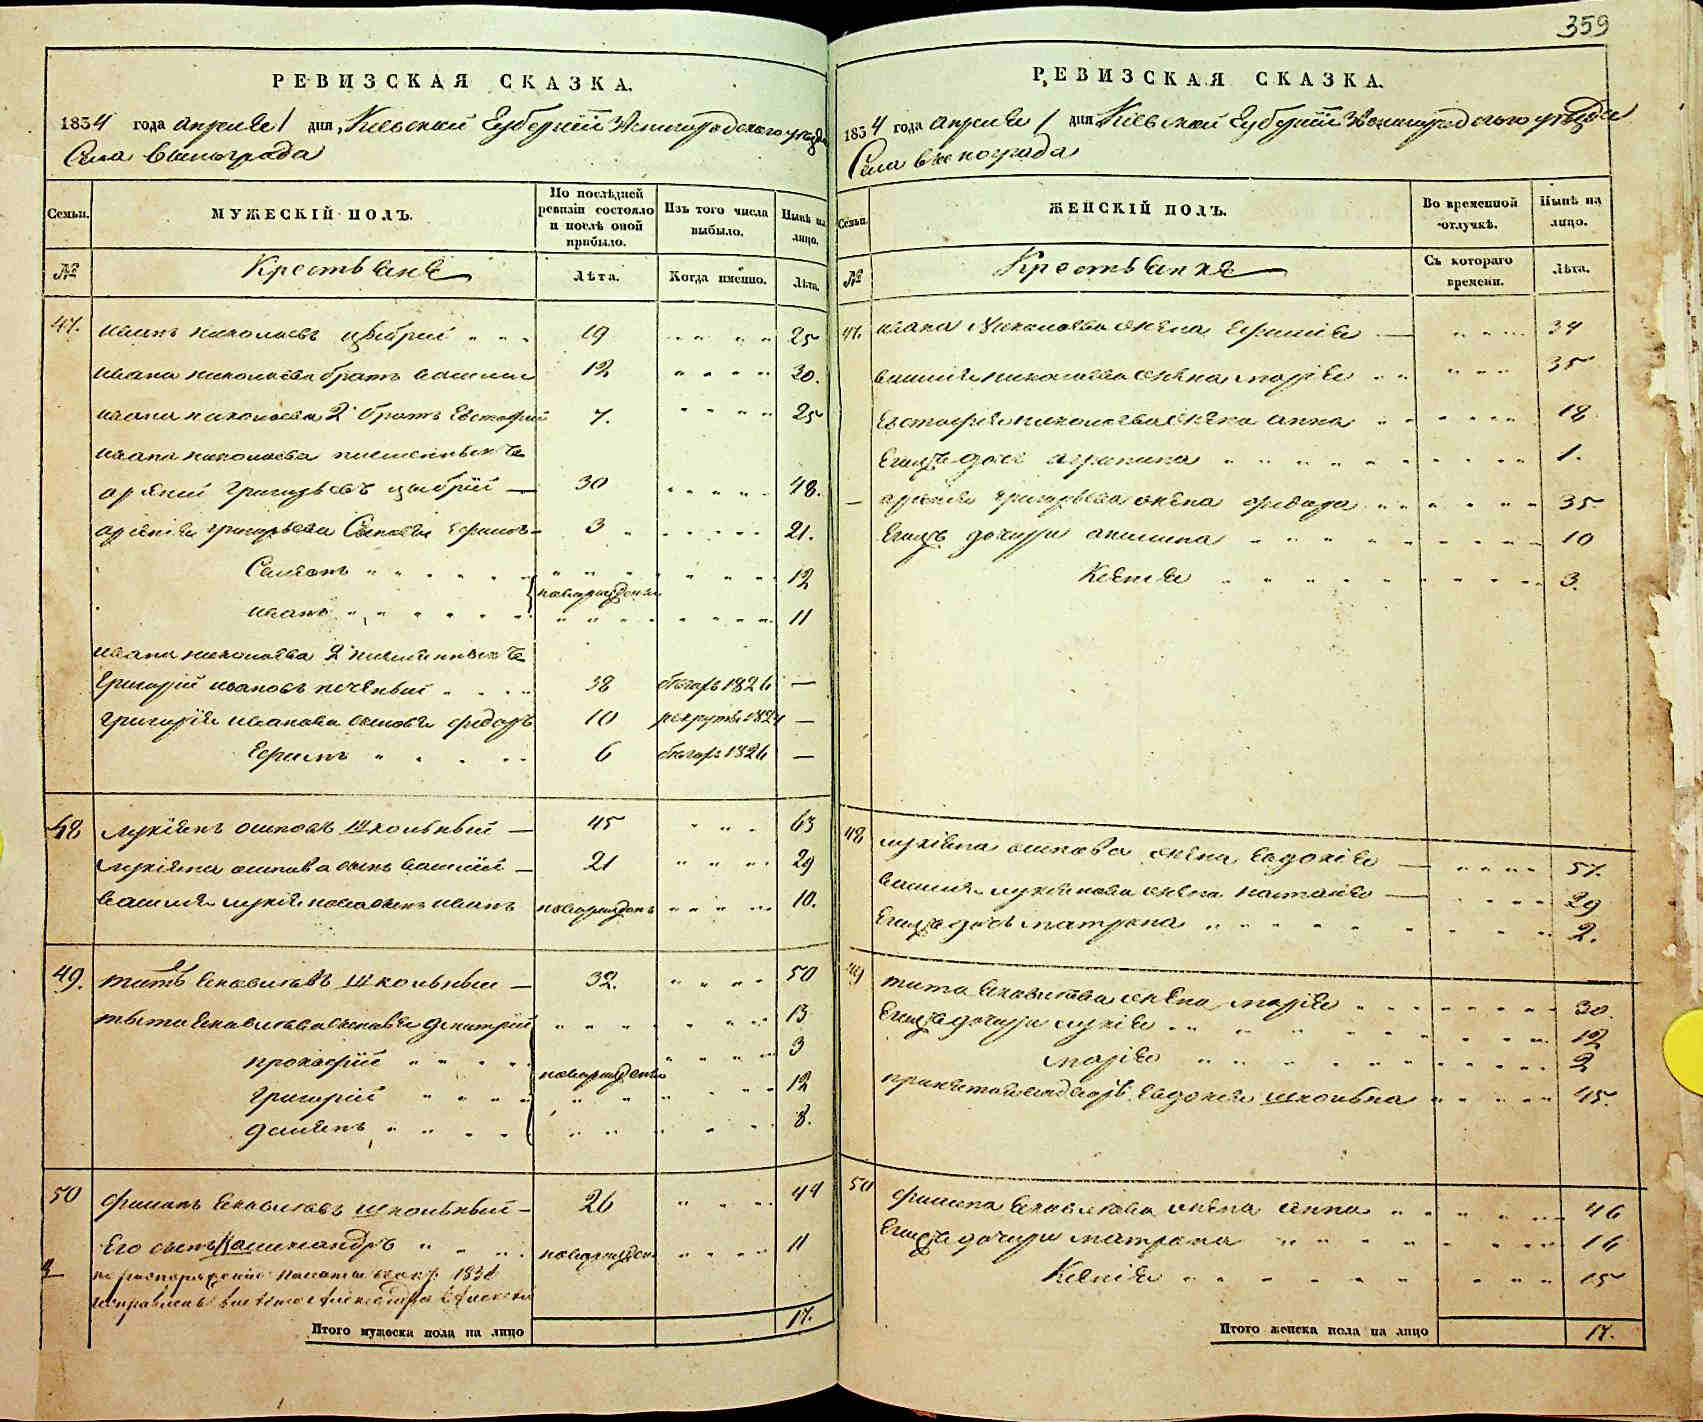 359
РЕВИЗСКАЯ СКАЗКА.
1834 года апреля 1 дня, Киевской Губернїи Звенигородского уезда
Села Винограда
Семьи.
МУЖЕСКІЙ ПОЛЪ.
По послѣдней ревизіи состояло и послѣ оной прибыло.
Изъ того числа выбыло.
Нынѣ на лицо.
№
Крестьяне
Лѣта.
Когда имѣнно.
Лѣта.
47. Иванъ Николаевъ 19 " " " " 25
Ивана Николаева братъ Василий 12 " " " " 30.
Ивана Николаева 2 братъ Евстафий 7. " " " " 25
Ивана Николаева племенникъ
Григорьевъ — 30 " " " " 48.
Григорьева Сыновья Ефимъ 3 " " " " 21.
Самсонъ " " " " 12
новорожденъ
Иванъ " " " " 11
Ивана Николаева 2 племенникъ
Григорий Ивановъ 38 бегахъ 1826 —
Григорїя Иванова сыновья Федоръ 10 рекруты 1824 —
Ефимъ " " " 6 бегахъ 1826 —
48 Лукїянъ Осиповъ Школьный — 45 " " " 63
Лукїяна Осипова сынъ Василїй — 21 " " " " 29
Василия Лукїянова сынъ Иванъ новорожденъ " " " " 10.
49. Титъ Школьный — 32. " " " " 50
Тита сыновья Дмитрий " " " " 13
Прокофїй " " " " 3
новорожденъ
Григорїй " " " " 12
Демянъ " " " " 8.
50 Филипъ Школьный — 26 " " " 44
Его сынъ Александръ " " " новорожденъ " " " " 11
Итого мужеска пола на лицо 17.
РЕВИЗСКАЯ СКАЗКА.
1834 года апреля 1 дня Киевской Губернїи Звенигородского уезда
Села Винограда
Семьи.
ЖЕНСКІЙ ПОЛЪ.
Во временной отлучкѣ.
Нынѣ на лицо.
№
Крестьянкя
Съ котораго времени.
Лѣта.
47. Ивана Николаева жена " " " " 34
Василия Николаева жена Марїя " " " " 35
Евстафия Николаева жена Анна " " " " 18
Егожъ дочь Агрипина " " " " 1.
— Григорьева жена " " " " 35
Егожъ дочери Акилина " " " " 10
Ксения " " " " 3.
48 Лукїяна Осипова жена Евдокия — " " " " 57.
Василия Лукїянова жена Наталия — " " " " 29
Егожъ дочь Матрона " " " " 2.
49 Тита жена Марїя " " " " 30.
Егожъ дочери Лукїя " " " " 12
Марїя " " " " 2
Евдокия Школьна " " " " 45.
50 Филипа жена Анна " " " " 46
Егожъ дочери Матрона " " " " 16
Ксенїя " " " " 15
Итого женска пола на лицо 17.